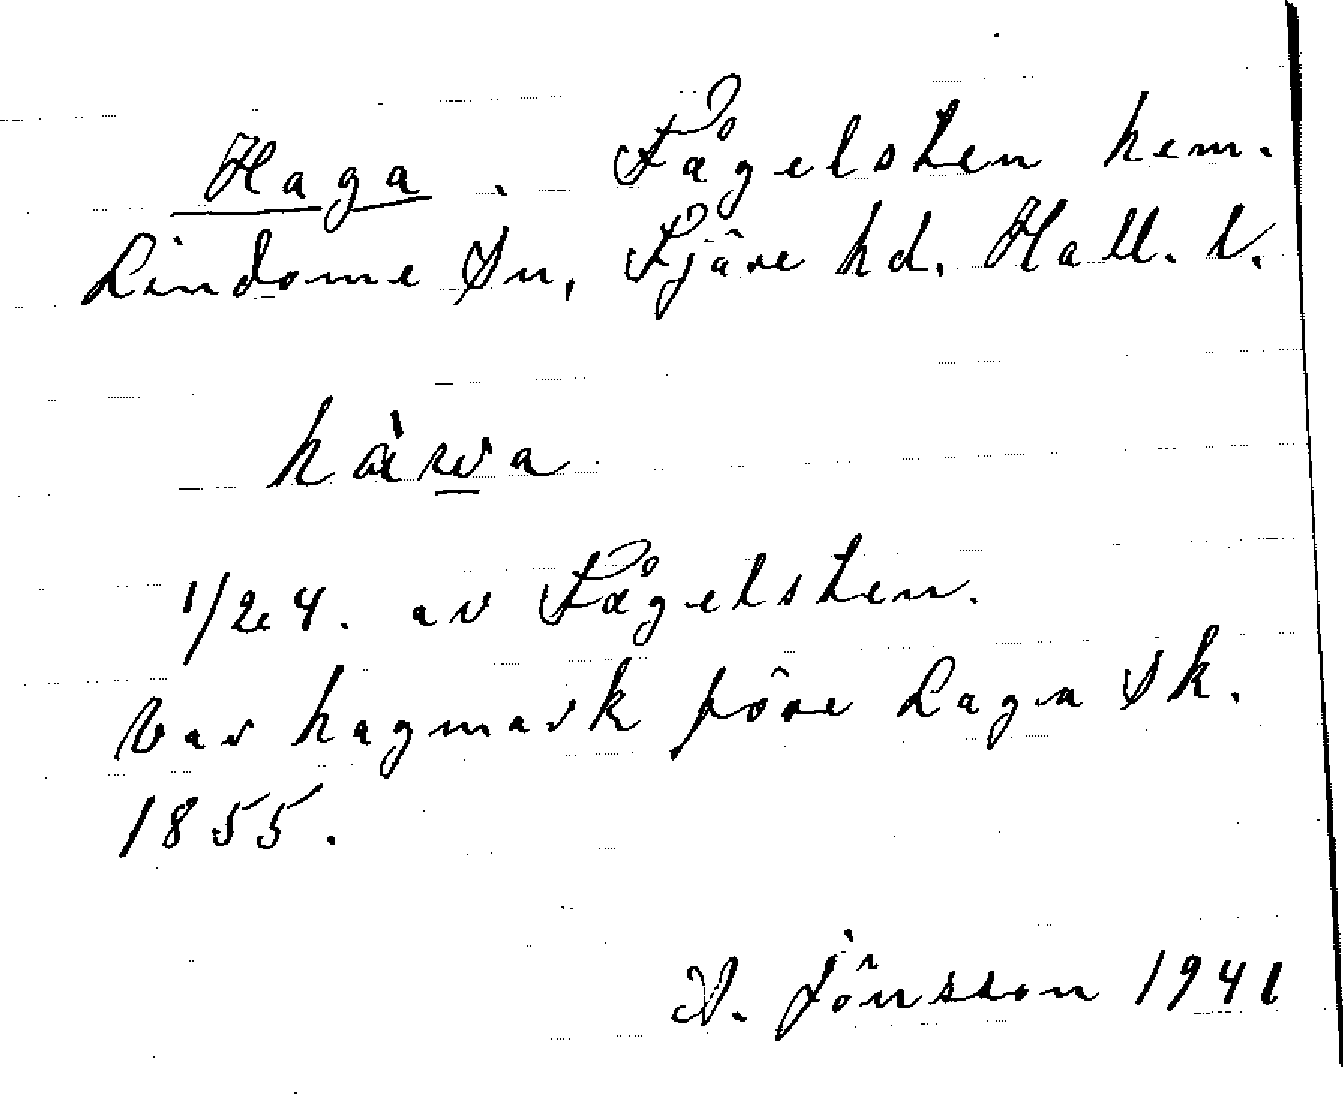 Haga. Fågelsten hem.
Lindome Sn, Fjäre hd. Hall. l.
1/24. av Fågelsten.
Var hagmark före Laga Sk.
1855.
A. Jönsson 1941